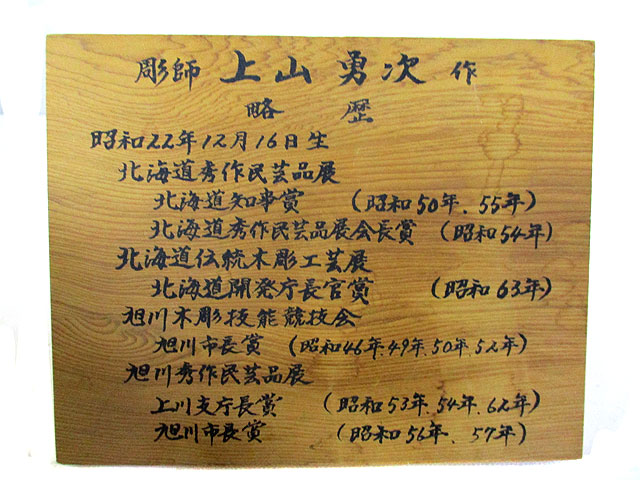 彫師 上山勇次 作
略 歴
昭和22年12月16日生
北海道秀作民芸品展
北海道知事賞 (昭和50年、55年)
北海道秀作民芸品展会長賞 (昭和54年)
北海道伝統木彫工芸展
北海道開発庁長官賞 (昭和63年)
旭川木彫技能競技会
旭川市長賞 (昭和46年.49年.50年.52年)
旭川秀作民芸品展
上川支庁長賞 (昭和53年.54年.62年)
旭川市長賞 (昭和56年. 57年)